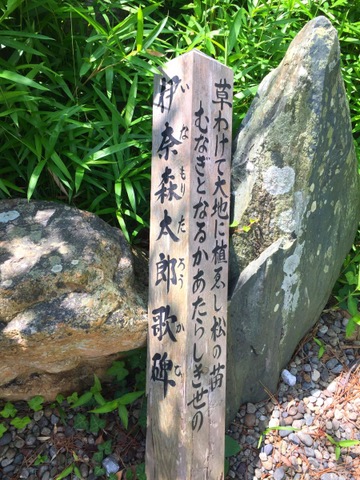 草わけて大地に植ゑし松の苗
むなぎとなるかあたらしき世の
いなもりたろうかひ
伊奈森太郎歌碑